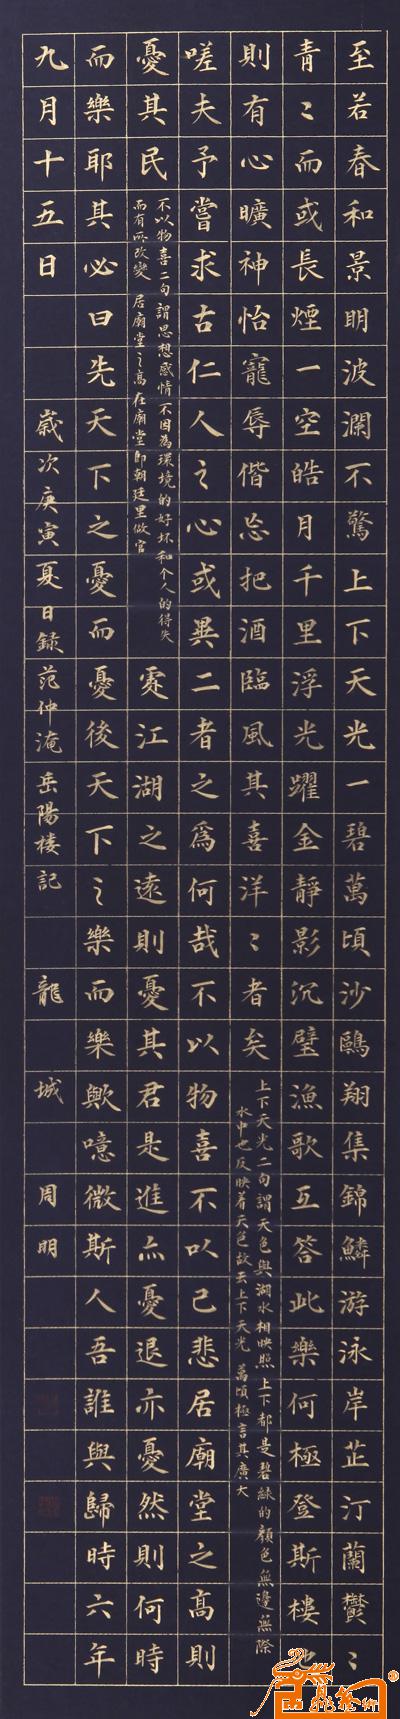 至若春和景明波瀾不驚上下天光一碧萬頃沙鷗翔集錦鱗游泳岸芷汀蘭鬱〻
青〻而或長煙一空皓月千里浮光躍金靜影沉璧漁歌互答此樂何極登斯樓也
則有心曠神怡寵辱偕忘把酒臨風其喜洋〻者矣
上下天光二句謂天色與湖水相映照上下都是碧綠的顏色無邊無際
水中也反映着天色故云上下天光 萬頃極言其廣大
嗟夫予嘗求古仁人之心或異二者之為何哉不以物喜不以己悲居廟堂之高則
憂其民
不以物喜二句謂思想感情不因為環境的好坏和个人的得失
而有所改變 居廟堂之高在廟堂即朝廷里做官
處江湖之遠則憂其君是進亦憂退亦憂然則何時
而樂耶其必曰先天下之憂而憂後天下之樂而樂歟噫微斯人吾誰與歸時六年
九月十五日
歲次庚寅夏日錄范仲淹岳陽楼記 龍城 周明